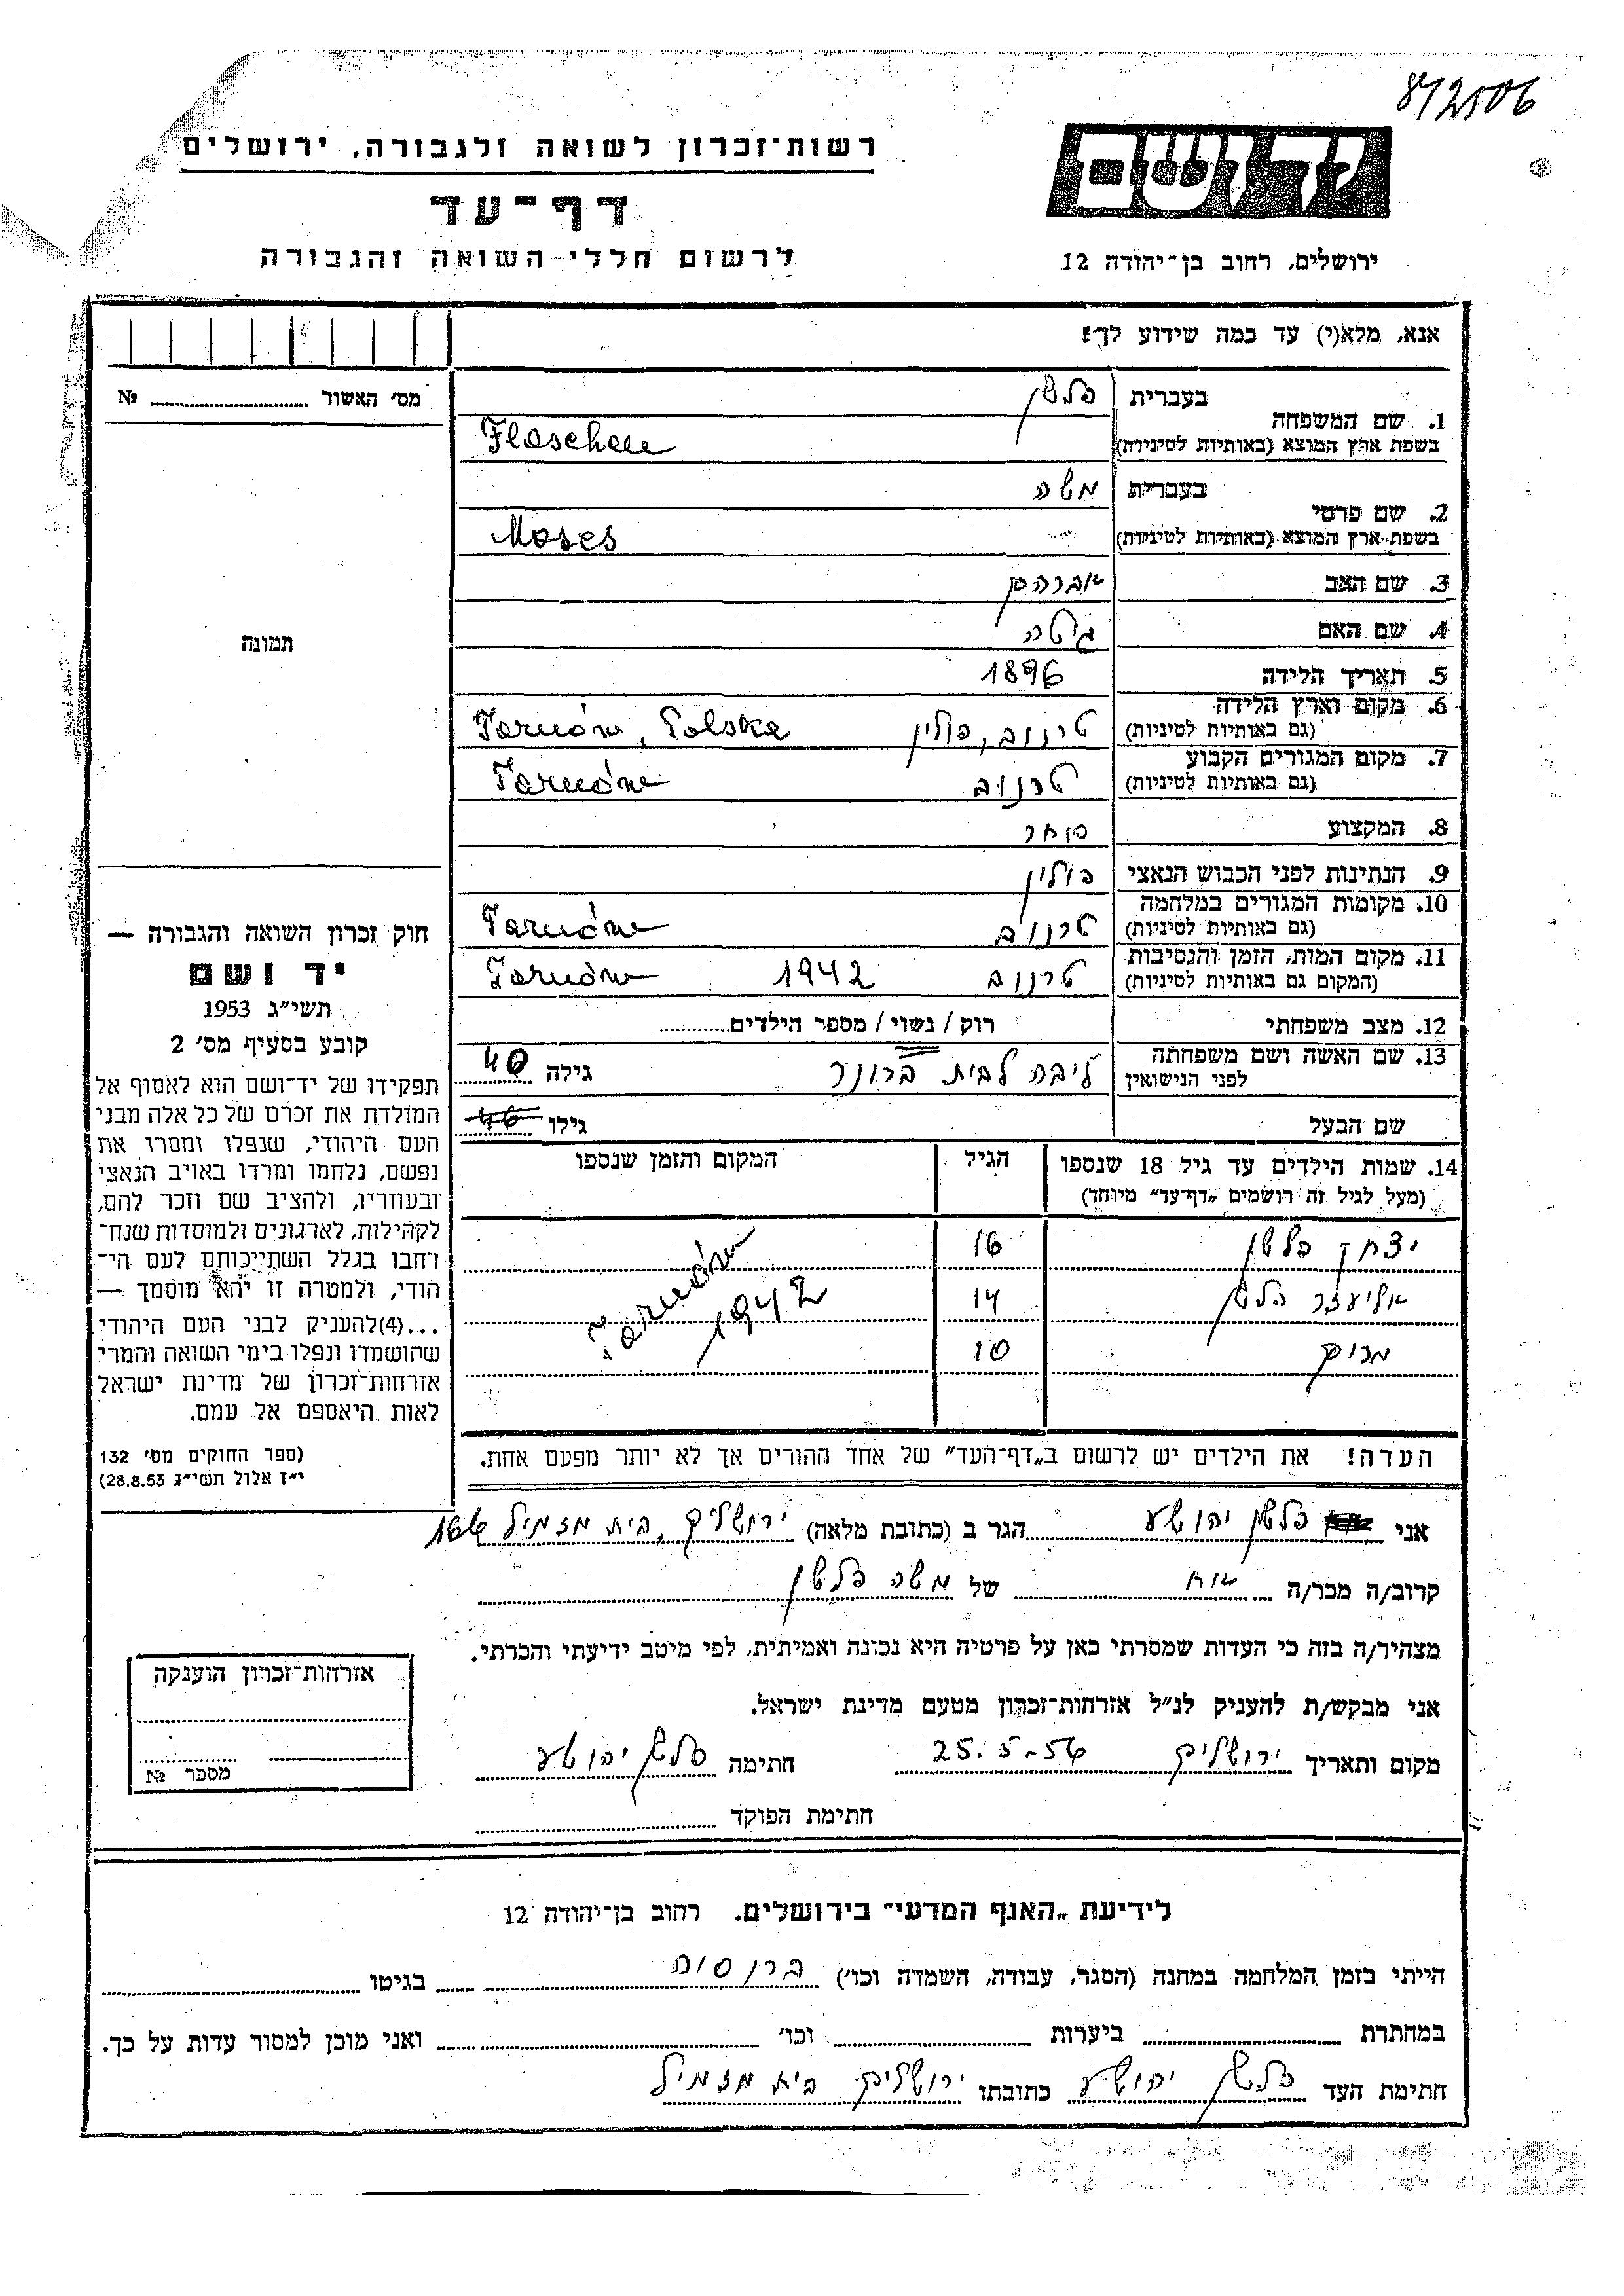 8/2506
רשות־זכרון לשואה ולגבורה, ירושלים
דף־עד
לרשום חללי השואה והגבורה
יד ושם
ירושלים, רחוב בן־יהודה 12
אנא, מלא(י) עד כמה שידוע לך!
מס' האשור № 
בעברית פלשן
1. שם המשפחה
בשפת ארץ המוצא (באותיות לטיניות) Flaschen
בעברית משה
2. שם פרטי
בשפת־ארץ המוצא (באותיות לטיניות) Moses
3. שם האב אברהם
4. שם האם גיטה
תמונה
5. תאריך הלידה 1896
6. מקום וארץ הלידה
(גם באותיות לטיניות) טרנוב, פולין Tarnów, Polska
7. מקום המגורים הקבוע
(גם באותיות לטיניות) טרנוב Tarnów
8. המקצוע סוחר
9. הנתינות לפני הכבוש הנאצי פולין
10. מקומות המגורים במלחמה
(גם באותיות לטיניות) טרנוב Tarnów
11. מקום המות, הזמן והנסיבות
(המקום גם באותיות לטיניות) טרנוב 1942 Tarnów
12. מצב משפחתי רוק / נשוי / מספר הילדים
13. שם האשה ושם משפחתה
לפני הנישואין ליבה לבית ברונר גילה 40
שם הבעל גילו 46
14. שמות הילדים עד גיל 18 שנספו הגיל המקום והזמן שנספו
(מעל לגיל זה רושמים „דף־עד” מיוחד)
יצחק פלשן 16 Tarnów
אליעזר פלשן 14 1942
מרים 10
הערה! את הילדים יש לרשום ב„דף־העד” של אחד ההורים אך לא יותר מפעם אחת.
חוק זכרון השואה והגבורה —
יד ושם
תשי״ג 1953
קובע בסעיף מס' 2
תפקידו של יד־ושם הוא לאסוף אל
המולדת את זכרם של כל אלה מבני
העם היהודי, שנפלו ומסרו את
נפשם, נלחמו ומרדו באויב הנאצי
ובעוזריו, ולהציב שם וזכר להם,
לקהילות, לארגונים ולמוסדות שנח־
רחבו בגלל השתייכותם לעם הי־
הודי, ולמטרה זו יהא מוסמך —
...(4)להעניק לבני העם היהודי
שהושמדו ונפלו בימי השואה והמרי
אזרחות־זכרון של מדינת ישראל
לאות היאספם אל עמם.
(ספר החוקים מס' 132
י״ז אלול תשי״ג 28.8.53)
אני פלשן יהושע הגר ב (כתובת מלאה) ירושלים, בית מזמיל 166
קרוב/ה מכר/ה אח של משה פלשן
מצהיר/ה בזה כי העדות שמסרתי כאן על פרטיה היא נכונה ואמיתית, לפי מיטב ידיעתי והכרתי.
אני מבקש/ת להעניק לנ״ל אזרחות־זכרון מטעם מדינת ישראל.
מקום ותאריך ירושלים 25.5.56 חתימה פלשן יהושע
חתימת הפוקד
אזרחות־זכרון הוענקה
מספר №
לידיעת „האגף המדעי” בירושלים. רחוב בן־יהודה 12
הייתי בזמן המלחמה במחנה (הסגר, עבודה, השמדה וכו') בגיטו
במחתרת ביערות וכו' ואני מוכן למסור עדות על כך.
חתימת העד פלשן יהושע כתובתו ירושלים בית מזמיל